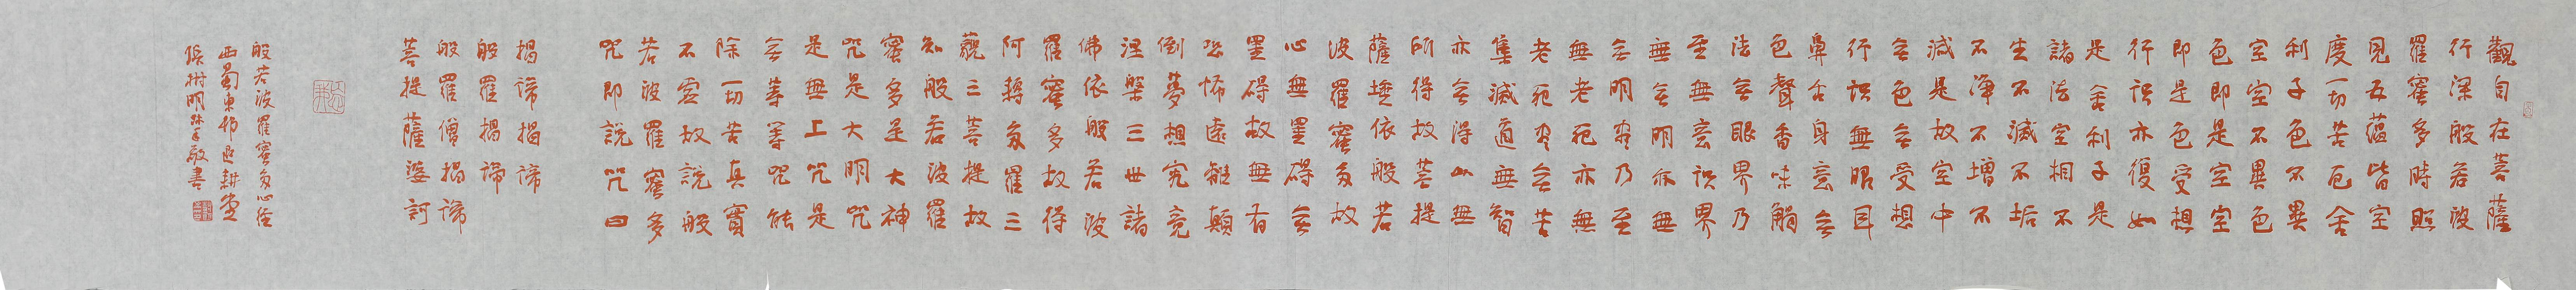 觀自在菩薩
行深般若波
羅蜜多時照
見五蘊皆空
度一切苦厄舍
利子色不異
空空不異色
色即是空空
即是色受想
行識亦復如
是舍利子是
諸法空相不
生不滅不垢
不淨不增不
減是故空中
無色無受想
行識無眼耳
鼻舌身意無
色聲香味觸
法無眼界乃
至無意識界
無無明亦無
無明盡乃至
無老死亦無
老死盡無苦
集滅道無智
亦無得以無
所得故菩提
薩埵依般若
波羅蜜多故
心無罣碍無
罣碍故無有
恐怖遠離顛
倒夢想究竟
涅槃三世諸
佛依般若波
羅蜜多故得
阿耨多羅三
藐三菩提故
知般若波羅
蜜多是大神
咒是大明咒
是無上咒是
無等等咒能
除一切苦真實
不虛故說般
若波羅蜜多
咒即說咒曰
揭諦揭諦
般羅揭諦
般羅僧揭諦
菩提薩婆訶
般若波羅蜜多心经
西蜀東
張樹明敬書